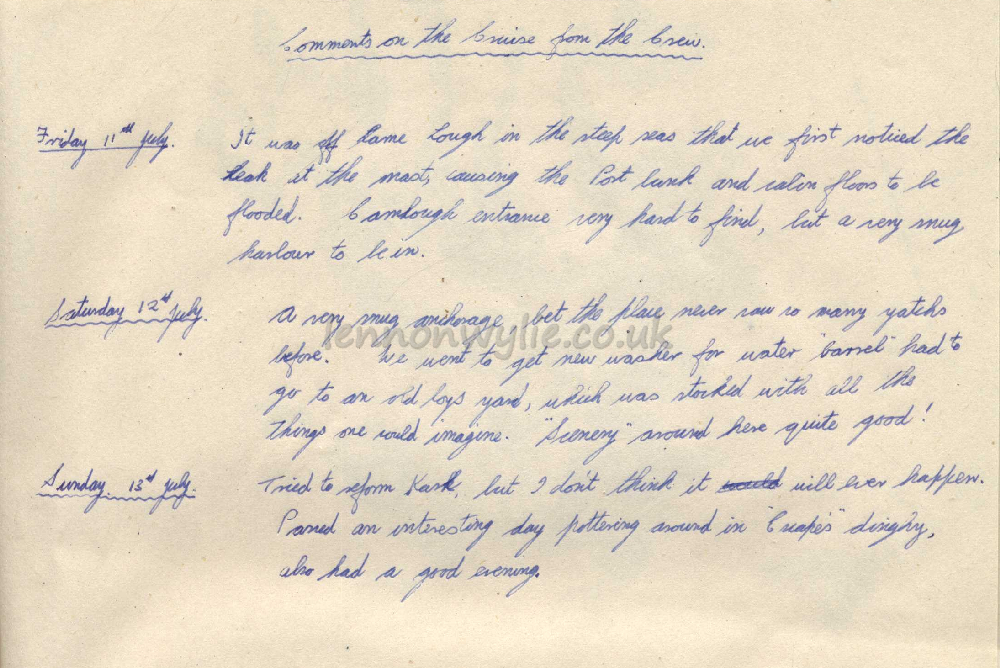 Comments on the Cruise from the Crew.
Friday 11th July. It was off Larne Lough in the steep seas that we first noticed the
leak at the mast, causing the Port bunk and cabin floors to be
flooded. Camlough entrance very hard to find, but a very snug
harbour to be in.
Saturday 12th July. A very snug anchorage bet the place never saw so many yatchs
before. We went to get new washer for water "barrel" had to
go to an old boys yard, which was stocked with all the
things one could imagine. "Scenery" around here quite good!
Sunday 13th July. Tried to reform Karl, but I don't think it could will ever happen.
Passed an interesting day pottering around in dinghy,
also had a good evening.
lennonwylie.co.uk